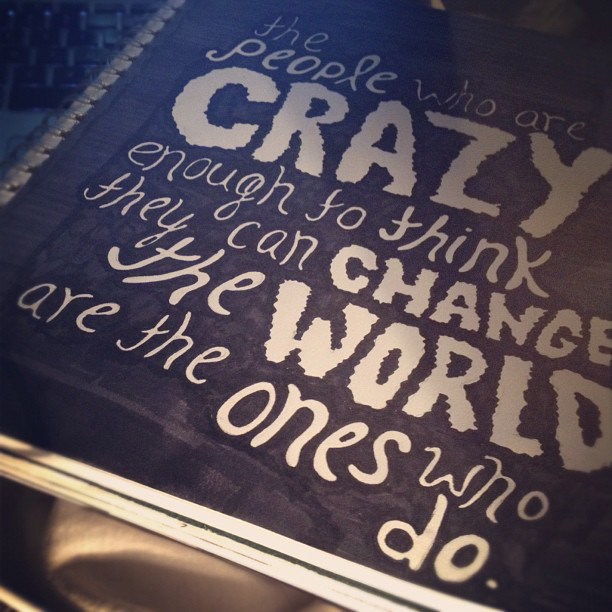 the
people who are
CRAZY
enough to think
they can CHANGE
the WORLD
are the ones who
do.